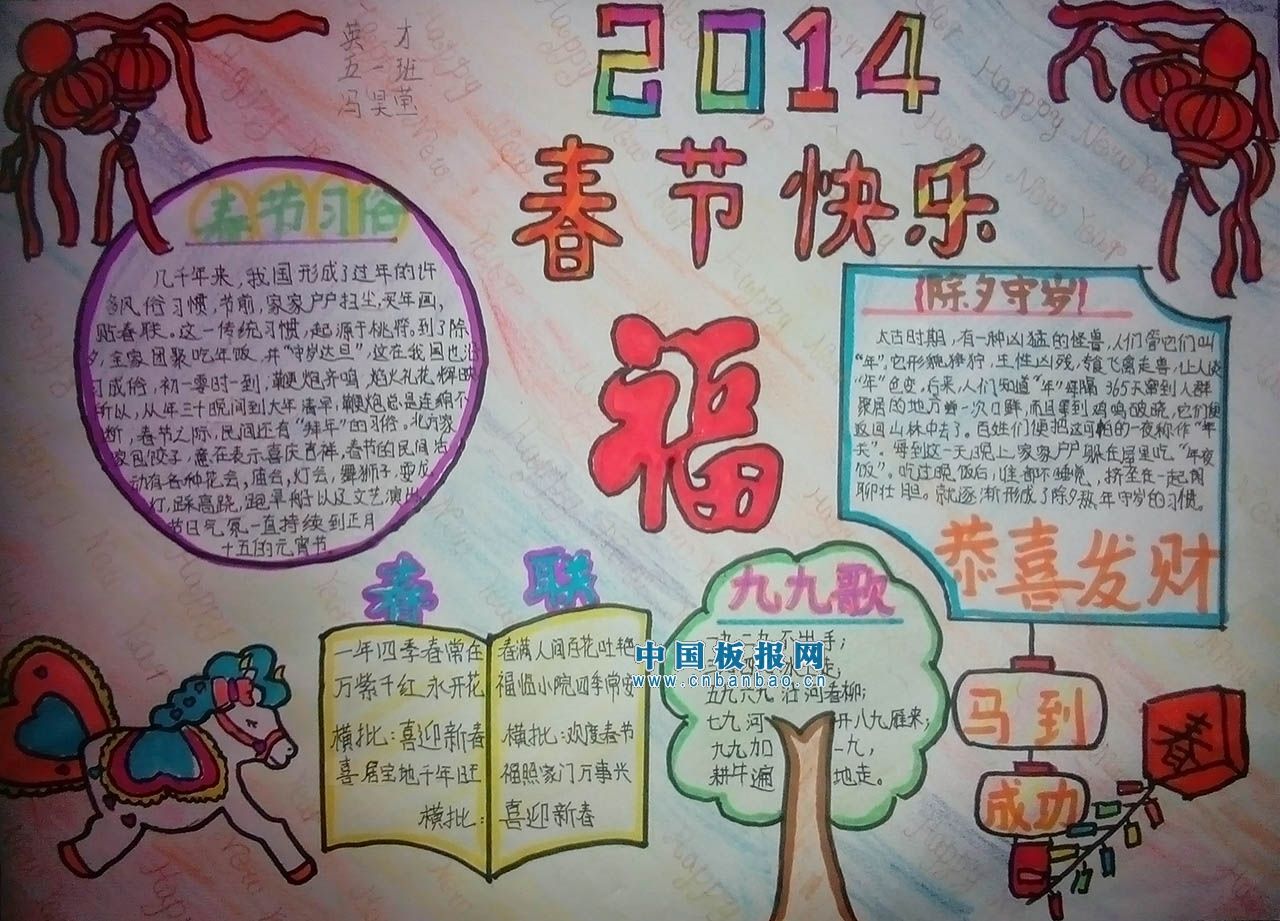 英才
五一班
2014
春节快乐
福
春节习俗
几千年来，我国形成了过年的许
多风俗习惯，节前，家家户户扫尘，买年画，
贴春联。这一传统习惯，起源于桃符。到了除
夕，全家团聚吃年饭，并“守岁达旦”，这在我国也沿
习成俗，初一零时一到，鞭炮齐鸣，焰火礼花，辉映
所以，从年三十晚间到大年清早，鞭炮总是连绵不
断，春节之际，民间还有“拜年”的习俗。北方家
家包饺子，意在表示喜庆吉祥，春节的民间活
动有各种花会，庙会，灯会，舞狮子，耍龙
灯，踩高跷，跑旱船以及文艺演出
节日气氛一直持续到正月
十五的元宵节。
除夕守岁
太古时期，有一种凶猛的怪兽，人们管它们叫
“年”。它形貌狰狞，生性凶残，专食飞禽走兽，让人谈
“年”色变，后来，人们知道“年”每隔365天窜到人群
聚居的地方尝一次口鲜，而且等到鸡鸣破晓，它们便
返回山林中去了。百姓们便把这可怕的一夜称作“年
关”。每到这一天晚上，家家户户躲在屋里吃“年夜
饭”。吃过晚饭后，谁都不睡觉，挤坐在一起闲
聊壮胆。就逐渐形成了除夕熬年守岁的习惯。
恭喜发财
春联
一年四季春常在
万紫千红永开花
横批：喜迎新春
喜居宝地千年旺
横批：
春满人间百花吐艳
福临小院四季常安
横批：欢度春节
福照家门万事兴
喜迎新春
九九歌
一九二九不出手；
五九六九沿河看柳；
七九河开八九雁来；
九九加一九，
耕牛遍地走。
中国板报网
www.cnbanbao.cn
马到
成功
春
Happy New Year